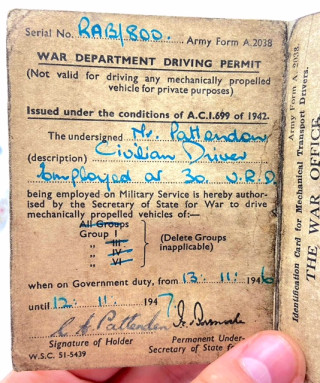 Serial No. RAB/800. Army Form A.2038
WAR DEPARTMENT DRIVING PERMIT
(Not valid for driving any mechanically propelled
vehicle for private purposes)
Issued under the conditions of A.C.I.699 of 1942.
The undersigned Mr. Pattendon
(description) Civilian Driver
Employed at 30. V.R.D.
being employed on Military Service is hereby author-
ised by the Secretary of State for War to drive
mechanically propelled vehicles of:—
All Groups
Group I
" III
" IV
" VI
(Delete Groups
inapplicable)
when on Government duty, from 13. 11. 1946
until 12. 11. 1947
C. Pattenden
Signature of Holder
Permanent Under-
Secretary of State for
W.S.C. 51-5439
Army Form A. 2038.
Identification Card for Mechanical Transport Drivers.
THE WAR OFFICE